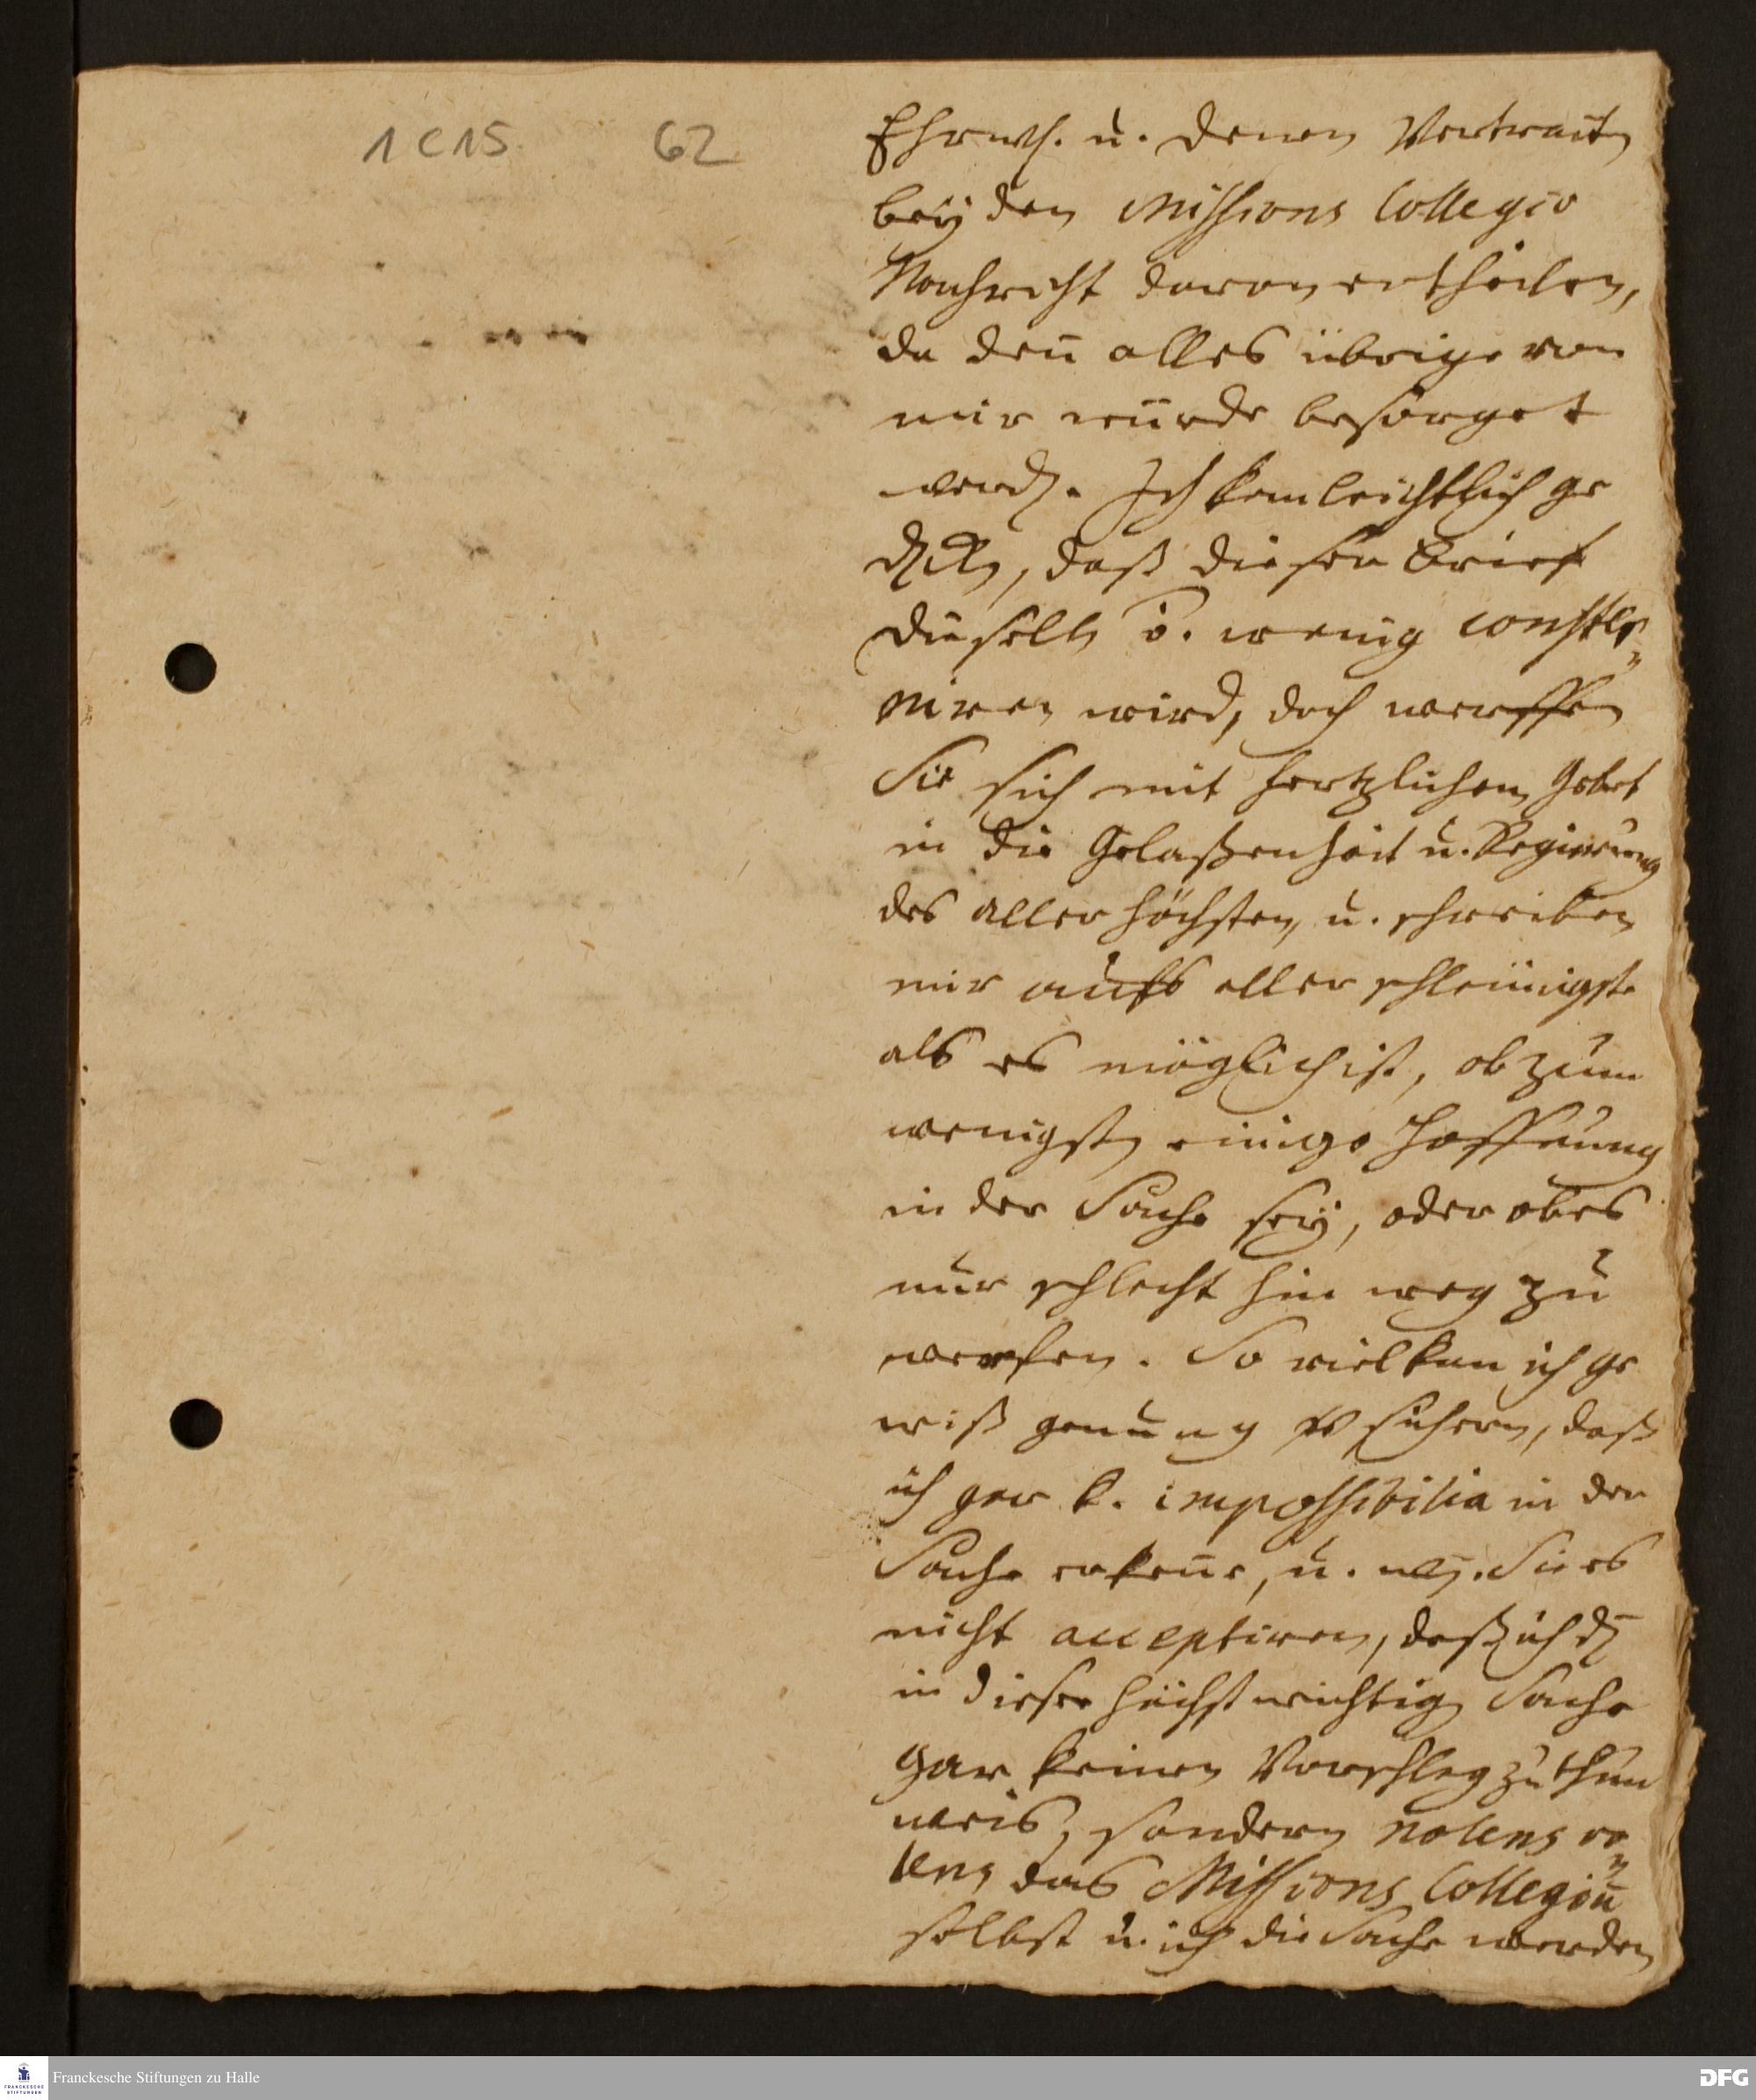 1 C 15 62
Ehrw. u. denen Vertrautn
bey den Missions Collegio
Nachricht davon ertheilen,
da deñ alles übrige von
mir würde besorget
werdn. Ich kan leichtlich ge
denckn, daß dieser Brief
dieselbn wenig conster
niren wird, doch werffen
Sie sich mit hertzlichen Gebet
in die Gelaßenheit u. Regierung
des allerhöchsten, u. schreiben
mir aufs aller schleunigste
als es möglich ist, ob zum
wenigstn einige Hoffnung
in der Sache sey, oder ob es
nur schlecht hin weg zu
werfen. So viel kan ich ge
wiß genung versichern, daß
ich gar k. impossibilia in der
Sache erkeñe, u. Sie es
nicht acceptiren, daß ich
in dieser höchst wichtign Sache
gar keinen Vorschlag zu thun
weis, sondern nolens vo
lens das Missions Collegiũ
selbst u. ich die Sache werden
Franckesche Stiftungen zu Halle
FRANCKESCHE
STIFTUNGEN
DFG